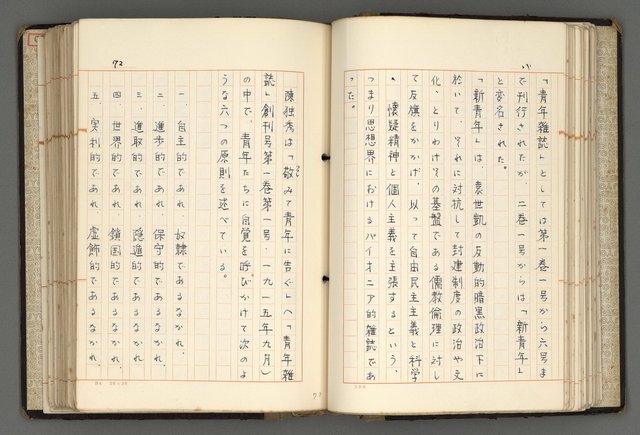 「青年雑誌」としては第一巻一号から六号ま
で刊行されたが、二巻一号からは「新青年」
と変名された。
「新青年」は、袁世凱の反動的暗黒政治下に
於いて、それに対抗して封建制度の政治や文
化、とりわけその基盤である儒教倫理に対し
て反旗をかかげ、以って自由民主主義と科学
、懐疑精神と個人主義を主張するという、
つまり思想界におけるパイオニア的雑誌であ
った。
72
陳独秀は「敬みて青年に告ぐ」へ「青年雑
誌」創刊号第一巻第一号、一九一五年九月）
の中で、青年たちに自覚を呼びかけて次のよ
うな六つの原則を述べている。
一、自主的であれ、奴隷であるなかれ、
二、進歩的であれ、保守的であるなかれ、
三、進取的であれ、隠遁的であるなかれ、
四、世界的であれ、鎖国的であるなかれ、
五、実利的であれ、虚飾的であるなかれ、